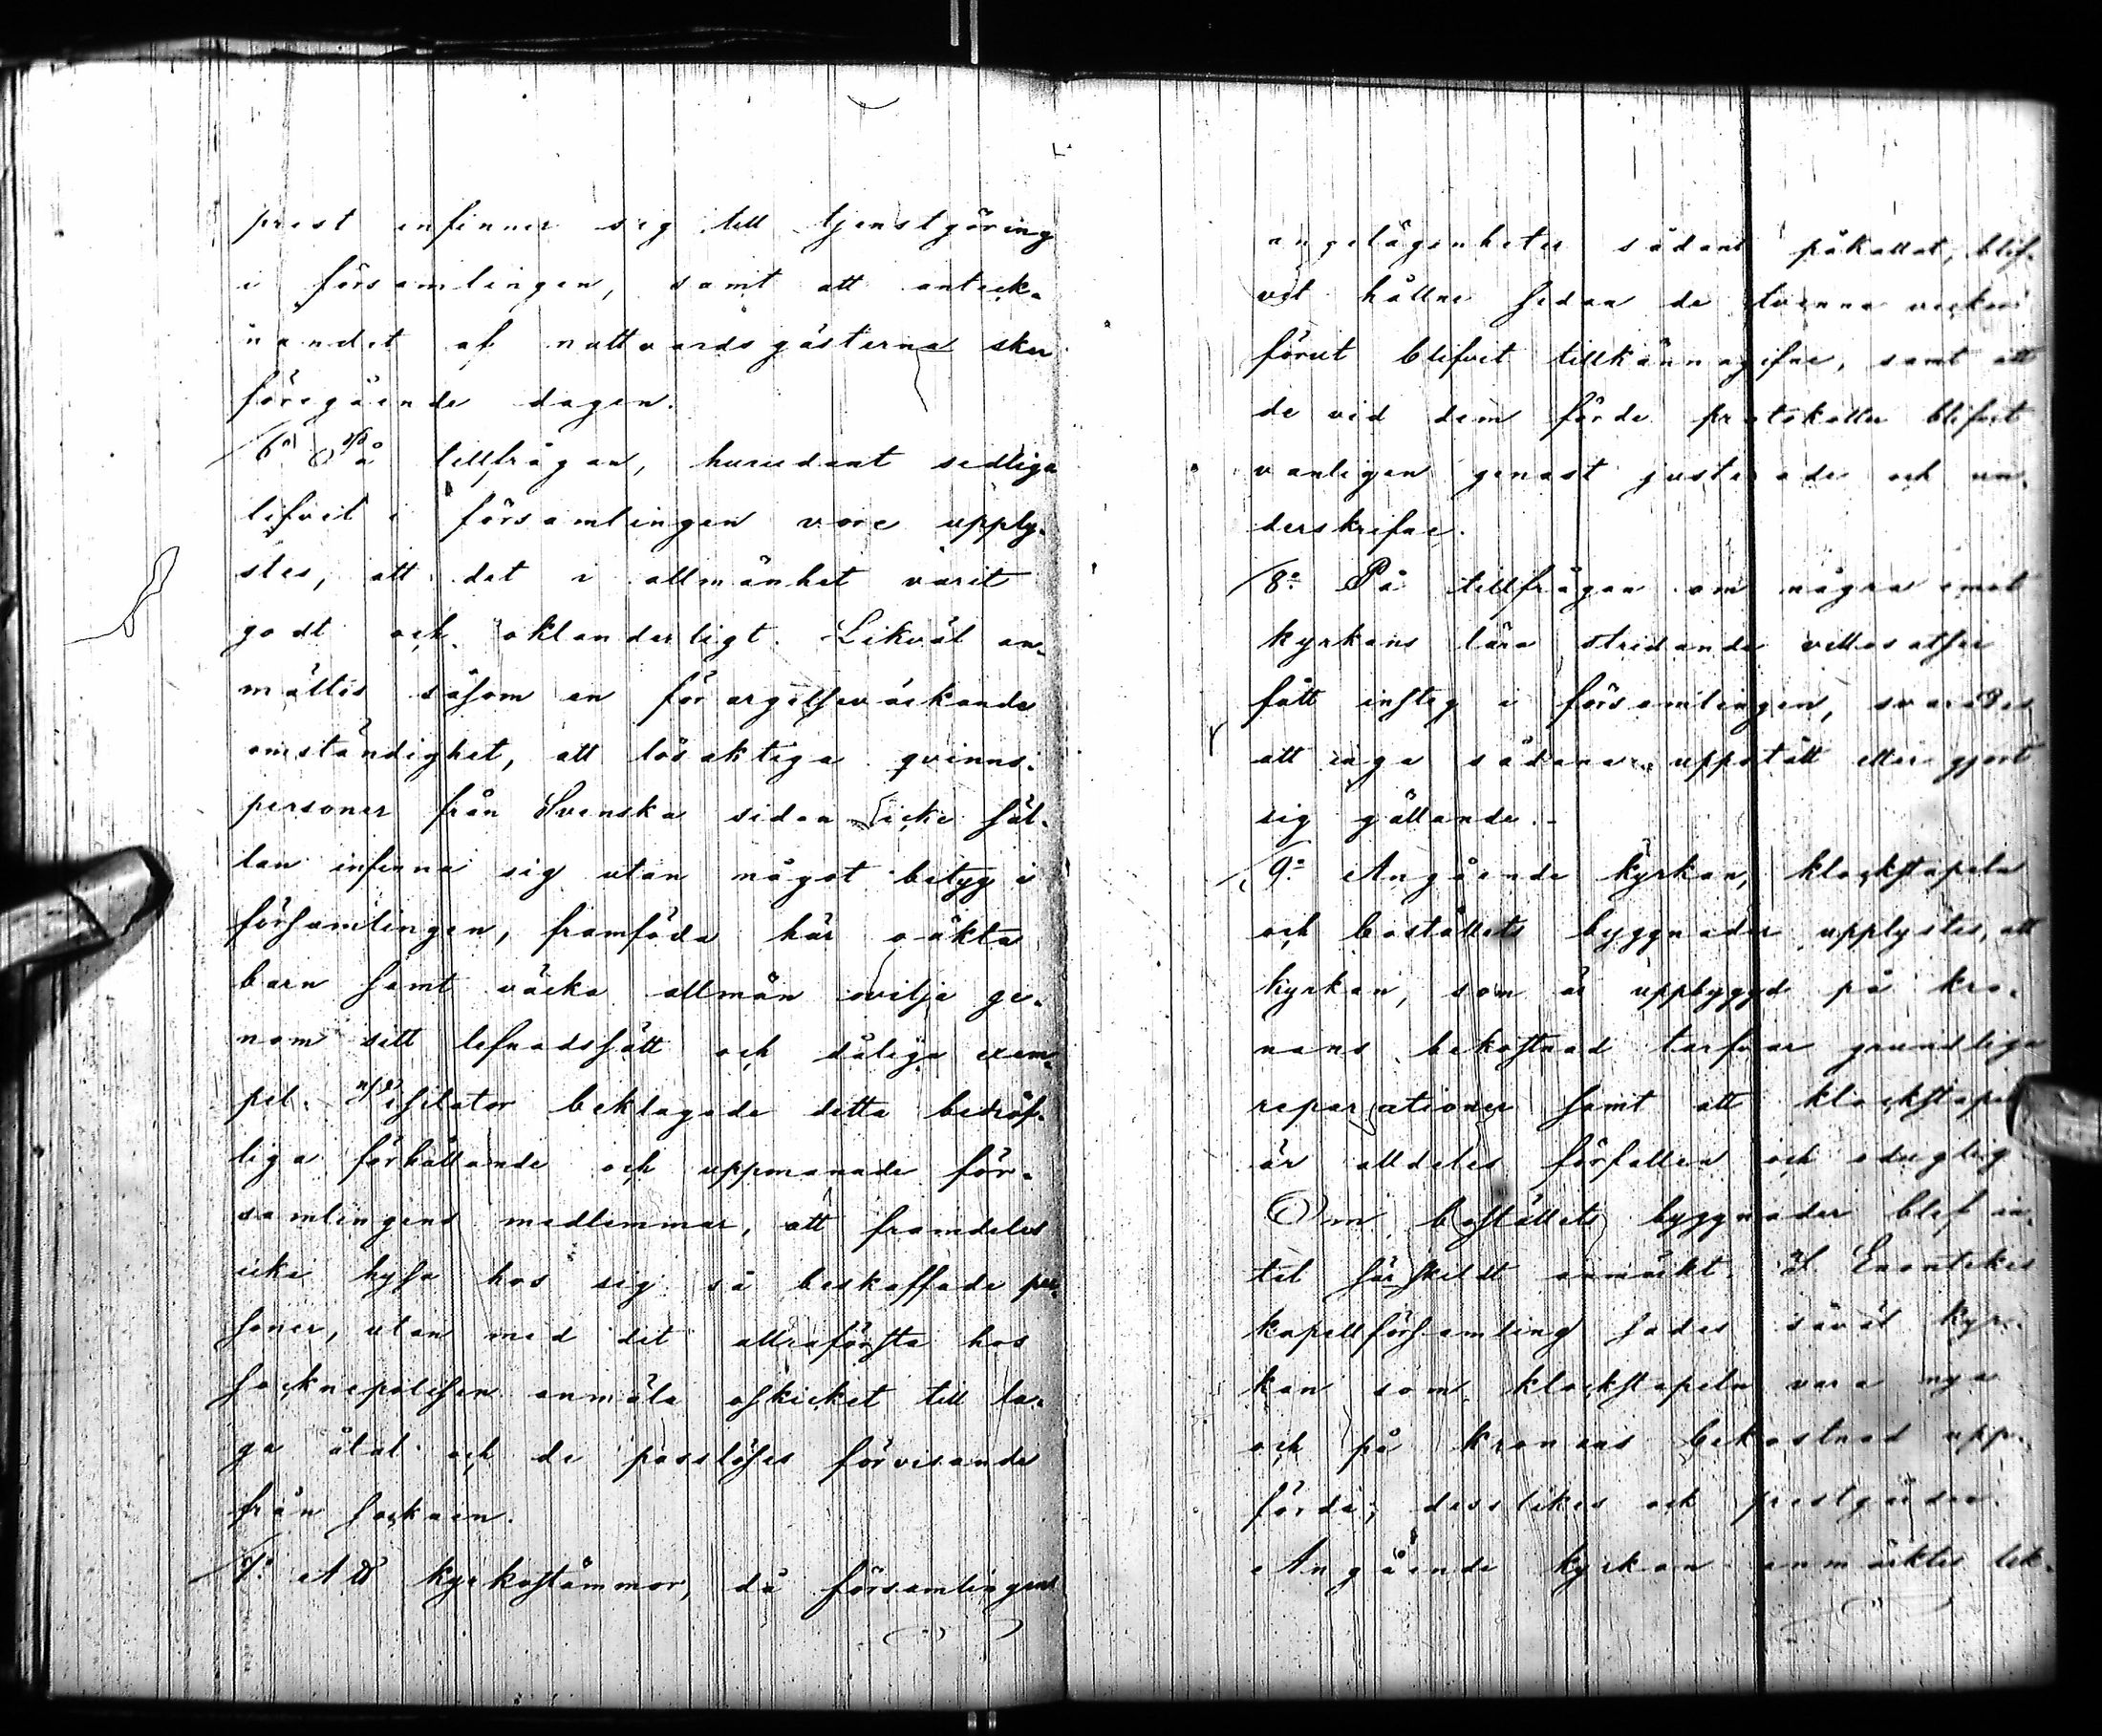 prest infinner sig till tjenstgöring
i församlingen, samt att anteck-
nandet af nattvardsgästerna sker
föregående dagen.
6:o På tillfrågan, hurudant sedliga
lifvet i församlingen vore upply-
stes, att det i allmänhet varit
godt och oklanderligt. Likväl an-
mältes såsom en förargelseväckande
omständighet, att lösaktiga qvinns-
personer från Svenska sidan icke säl-
lan infinna sig utan något betyg i
församlingen, framföda här oäkta
barn samt väcka allmän ovilja ge-
nom sitt lefnadssätt och dåliga exem-
pel. Visitator beklagade detta bedröf-
liga förhållande och uppmanade för-
samlingens medlemmar, att framdeles
icke hysa hos sig så beskaffade per-
soner, utan med det allraförsta hos
socknepolisen anmäla ofskicket till la-
ga åtal och de passlöses förvisande
från socknen.
7:o Att kyrkostämmor, då församlingens
angelägenheter sådant påkallat, blif-
vit hållne sedan de tvenne veckor
förut blifvit tillkännagifne, samt att
de vid dem förde protokoller blifvit
vanligen genast justerade och un-
derskrifne.
8:o På tillfrågan om några emot
kyrkans lära stridande villosatser
fått insteg i församlingen, svarades
att inga sådana uppstått eller gjort
sig gällande.-
9:o Angående kyrkan, klockstapeln
och boställets byggnader upplystes, att
kyrkan, som är uppbyggd på kro-
nans bekostnad tarfvar grundliga
reparationer samt att klockstapeln
är alldeles förfallen och oduglig
Om boställets byggnader blef in-
tet särskildt anmärkt. I Enontekis
kapellförsamling sades såväl kyr-
kan som klockstapeln vara nya
och på kronans bekostnad upp-
förde; desslikes ock prestgården.
Angående kyrkan anmärktes lik-